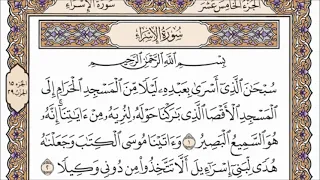 سُورَةُ الْإِسْرَاءِ
الجُزْءُ الخَامِسُ عَشَرَ
سُورَةُ الإِسْرَاءِ
بِسْمِ ٱللَّهِ ٱلرَّحْمَٰنِ ٱلرَّحِيمِ
سُبْحَٰنَ ٱلَّذِىٓ أَسْرَىٰ بِعَبْدِهِۦ لَيْلًا مِّنَ ٱلْمَسْجِدِ ٱلْحَرَامِ إِلَى
ٱلْمَسْجِدِ ٱلْأَقْصَا ٱلَّذِى بَٰرَكْنَا حَوْلَهُۥ لِنُرِيَهُۥ مِنْ ءَايَٰتِنَآ ۚ إِنَّهُۥ
هُوَ ٱلسَّمِيعُ ٱلْبَصِيرُ ١ وَءَاتَيْنَا مُوسَى ٱلْكِتَٰبَ وَجَعَلْنَٰهُ
هُدًى لِّبَنِىٓ إِسْرَٰٓءِيلَ أَلَّا تَتَّخِذُوا۟ مِن دُونِى وَكِيلًا ٢
الجزء ١٥
الحزب ٢٩